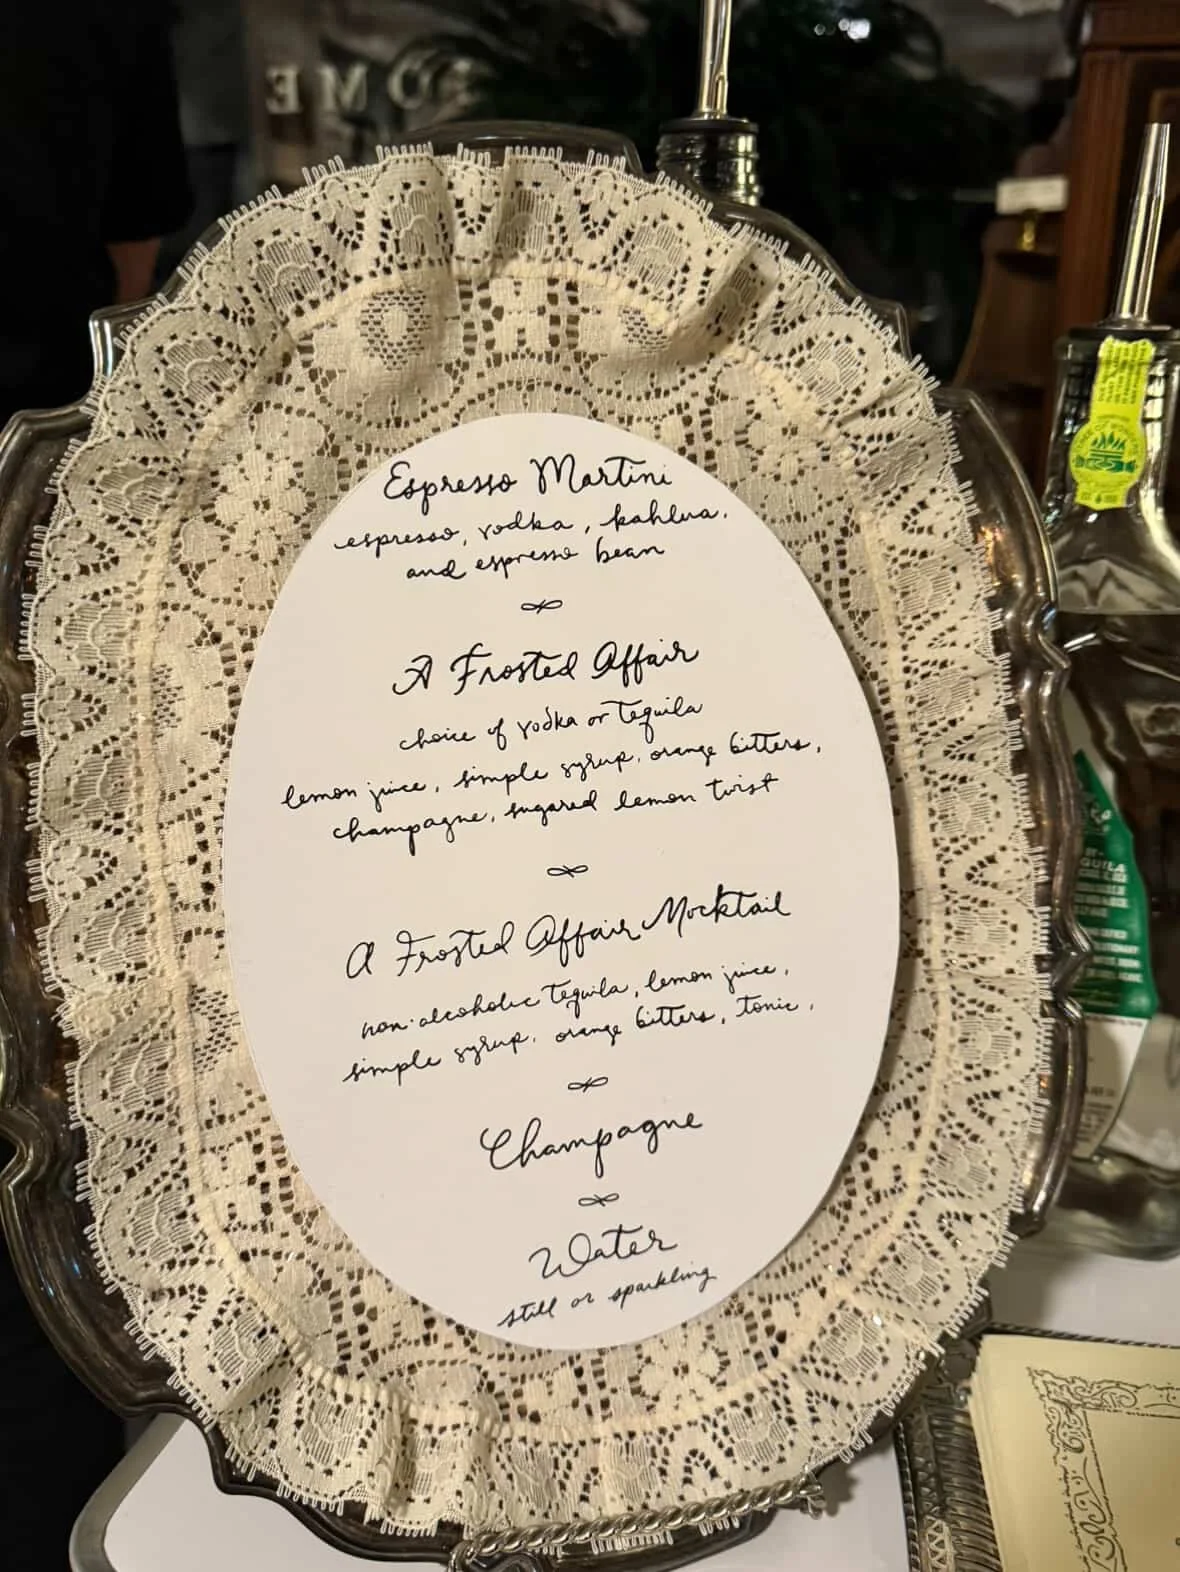 OME
Espresso Martini
espresso, vodka, kahlua,
and espresso bean
A Frosted Affair
choice of vodka or tequila
lemon juice, simple syrup, orange bitters,
champagne, sugared lemon twist
A Frosted Affair Mocktail
non-alcoholic tequila, lemon juice,
simple syrup, orange bitters, tonic,
Champagne
Water
still or sparkling